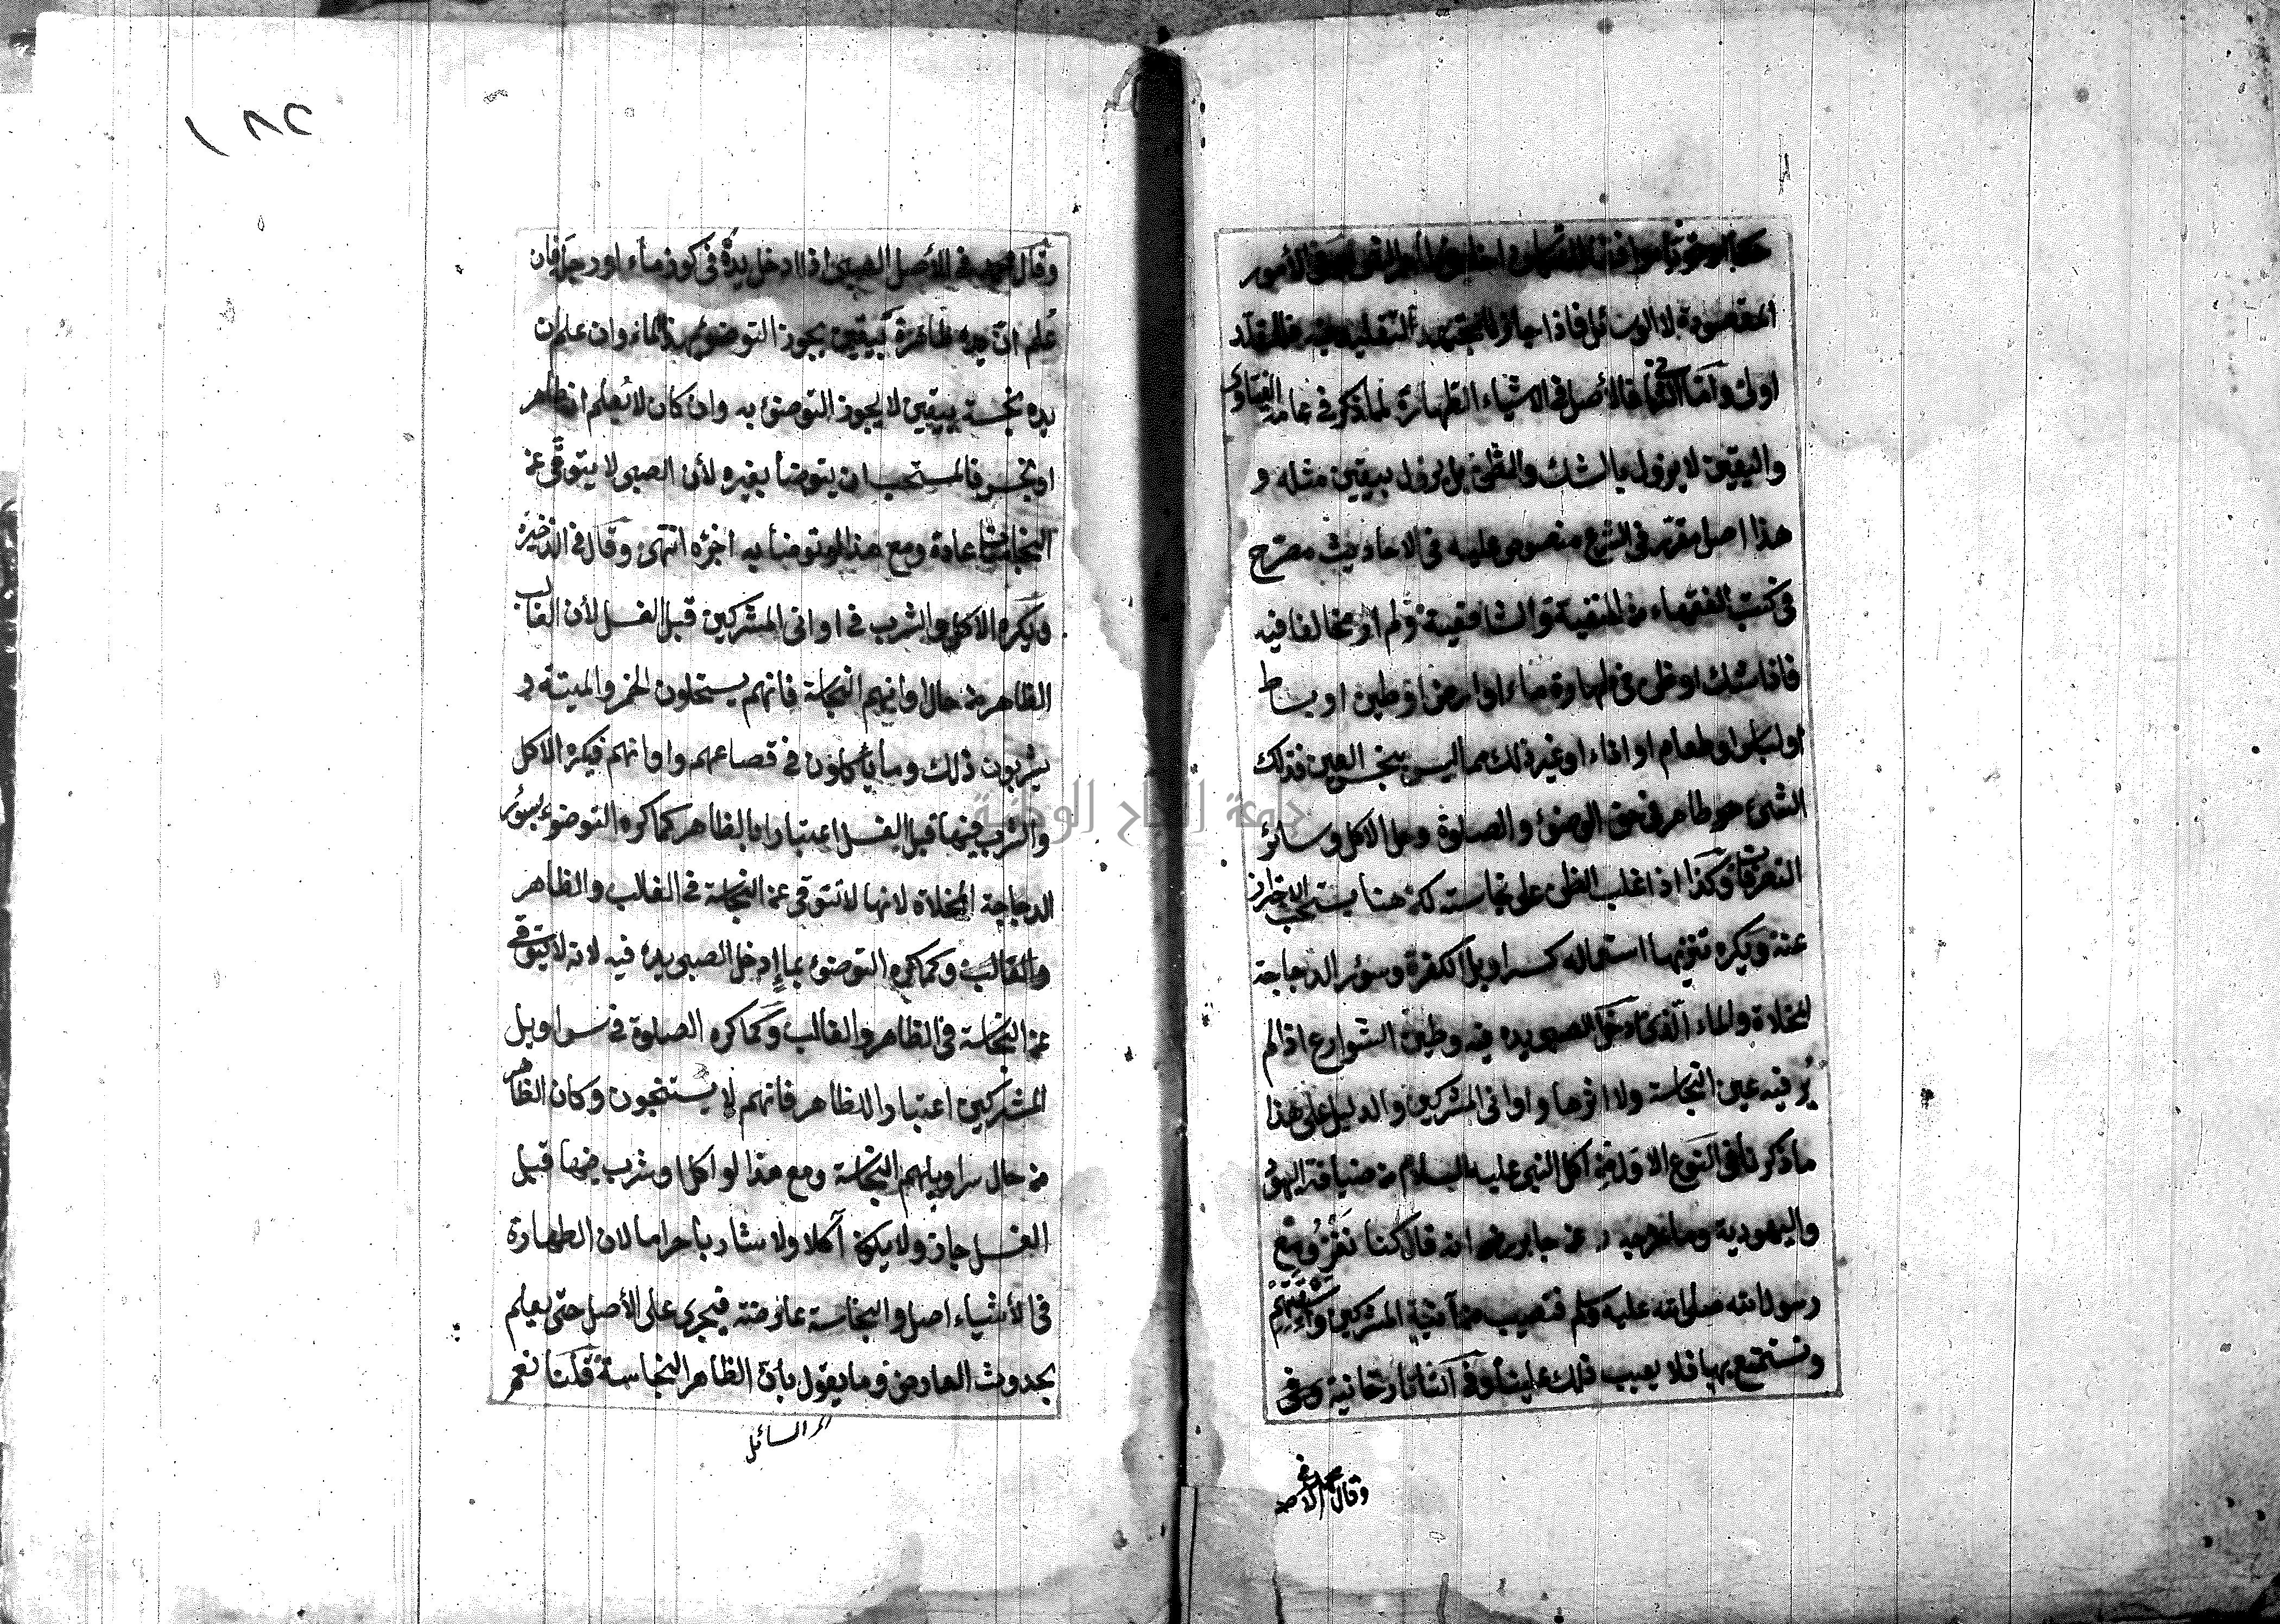 المقصودة لا الوسائل فاذا جاز للمجتهد التقليد فيه فالمقلد
اولى وأما الثاني فالأصل في الاشياء الطهارة لما ذكر في عامة الفتاوى
واليقين لا يزول بالشك والظن بل يزول بيقين مثله و
هذا اصل مقرر في الشرع منصوص عليه في الاحاديث مصرح
في كتب الفقهاء من الحنفية والشافعية ولم ار مخالفا فيه
فاذا شك او ظن في طهارة ماء او ارض او طين او بساط
او لباس او طعام او اناء او غير ذلك مما ليس بنجس العين فذلك
الشئ هو طاهر في حق الوضوء والصلوة وحل الاكل وسائر
التصرفات وكذا اذا غلب الظن على نجاسته لكن هنا يستحب الاحتراز
عنه ويكره تنزيها استعماله كسراويل الكفرة وسؤر الدجاجة
المخلاة والماء الذي ادخل الصبي يده فيه وطين الشوارع اذا لم
ير فيه عين النجاسة ولا اثرها واواني المشركين والدليل على هذا
ما ذكرنا في النوع الاول من اكل النبي عليه السلام من ضيافة اليهود
واليهودية وما خرجه د عن جابر رضه انه قال كنا نغزو مع
رسول الله صلى الله عليه وسلم فنصيب من آنية المشركين واسقيتهم
ونستمتع بها فلا يعيب ذلك علينا وفي التاتارخانية وفي
وقال محمد في الاصل
وقال محمد في الأصل الصبي اذا ادخل يده في كوز ماء او رجله فان
علم ان يده طاهرة بيقين يجوز التوضؤ بهذا الماء وان علم ان
يده نجسة بيقين لا يجوز التوضئ به وان كان لا يعلم انه طاهر
او نجس فالمستحب ان يتوضأ بغيره لأن الصبى لا يتوقى عن
النجاسات عادة ومع هذا لو توضأ به اجزءه انتهى وقال في الذخيرة
ويكره الاكل والشرب في اوانى المشركين قبل الغسل لأن الغالب
الظاهر من حال اوانيهم النجاسة فانهم يستحلون الخمر والميتة و
يشربون ذلك وما يأكلون في قصاعهم واوانهم فيكره الاكل
والشرب فيها قبل الغسل اعتبارا بالظاهر كما كره التوضوء بسؤر
الدجاجة المخلاة لانها لا تتوقى عن النجاسة في الغالب والظاهر
والغالب وكما كره التوضئ بماء ادخل الصبي يده فيه لانه لا يتوقى
عن النجاسة في الظاهر والغالب وكما كره الصلوة في سراويل
المشركين اعتبارا للظاهر فانهم لا يستنجون وكان الظاهر
من حال سراويلهم النجاسة ومع هذا لو اكل او شرب فيها قبل
الغسل جاز ولا يكون آكلا ولا شاربا حراما لان الطهارة
في الأشياء اصل والنجاسة عارضة فيجري على الأصل حتى يعلم
بحدوث العارض وما يقول بأن الظاهر النجاسة قلنا نعم
١٨٢